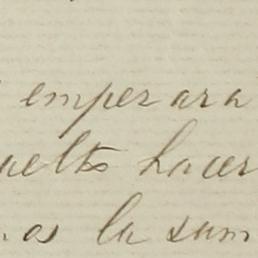 emperara
uelto hacer
os la sum